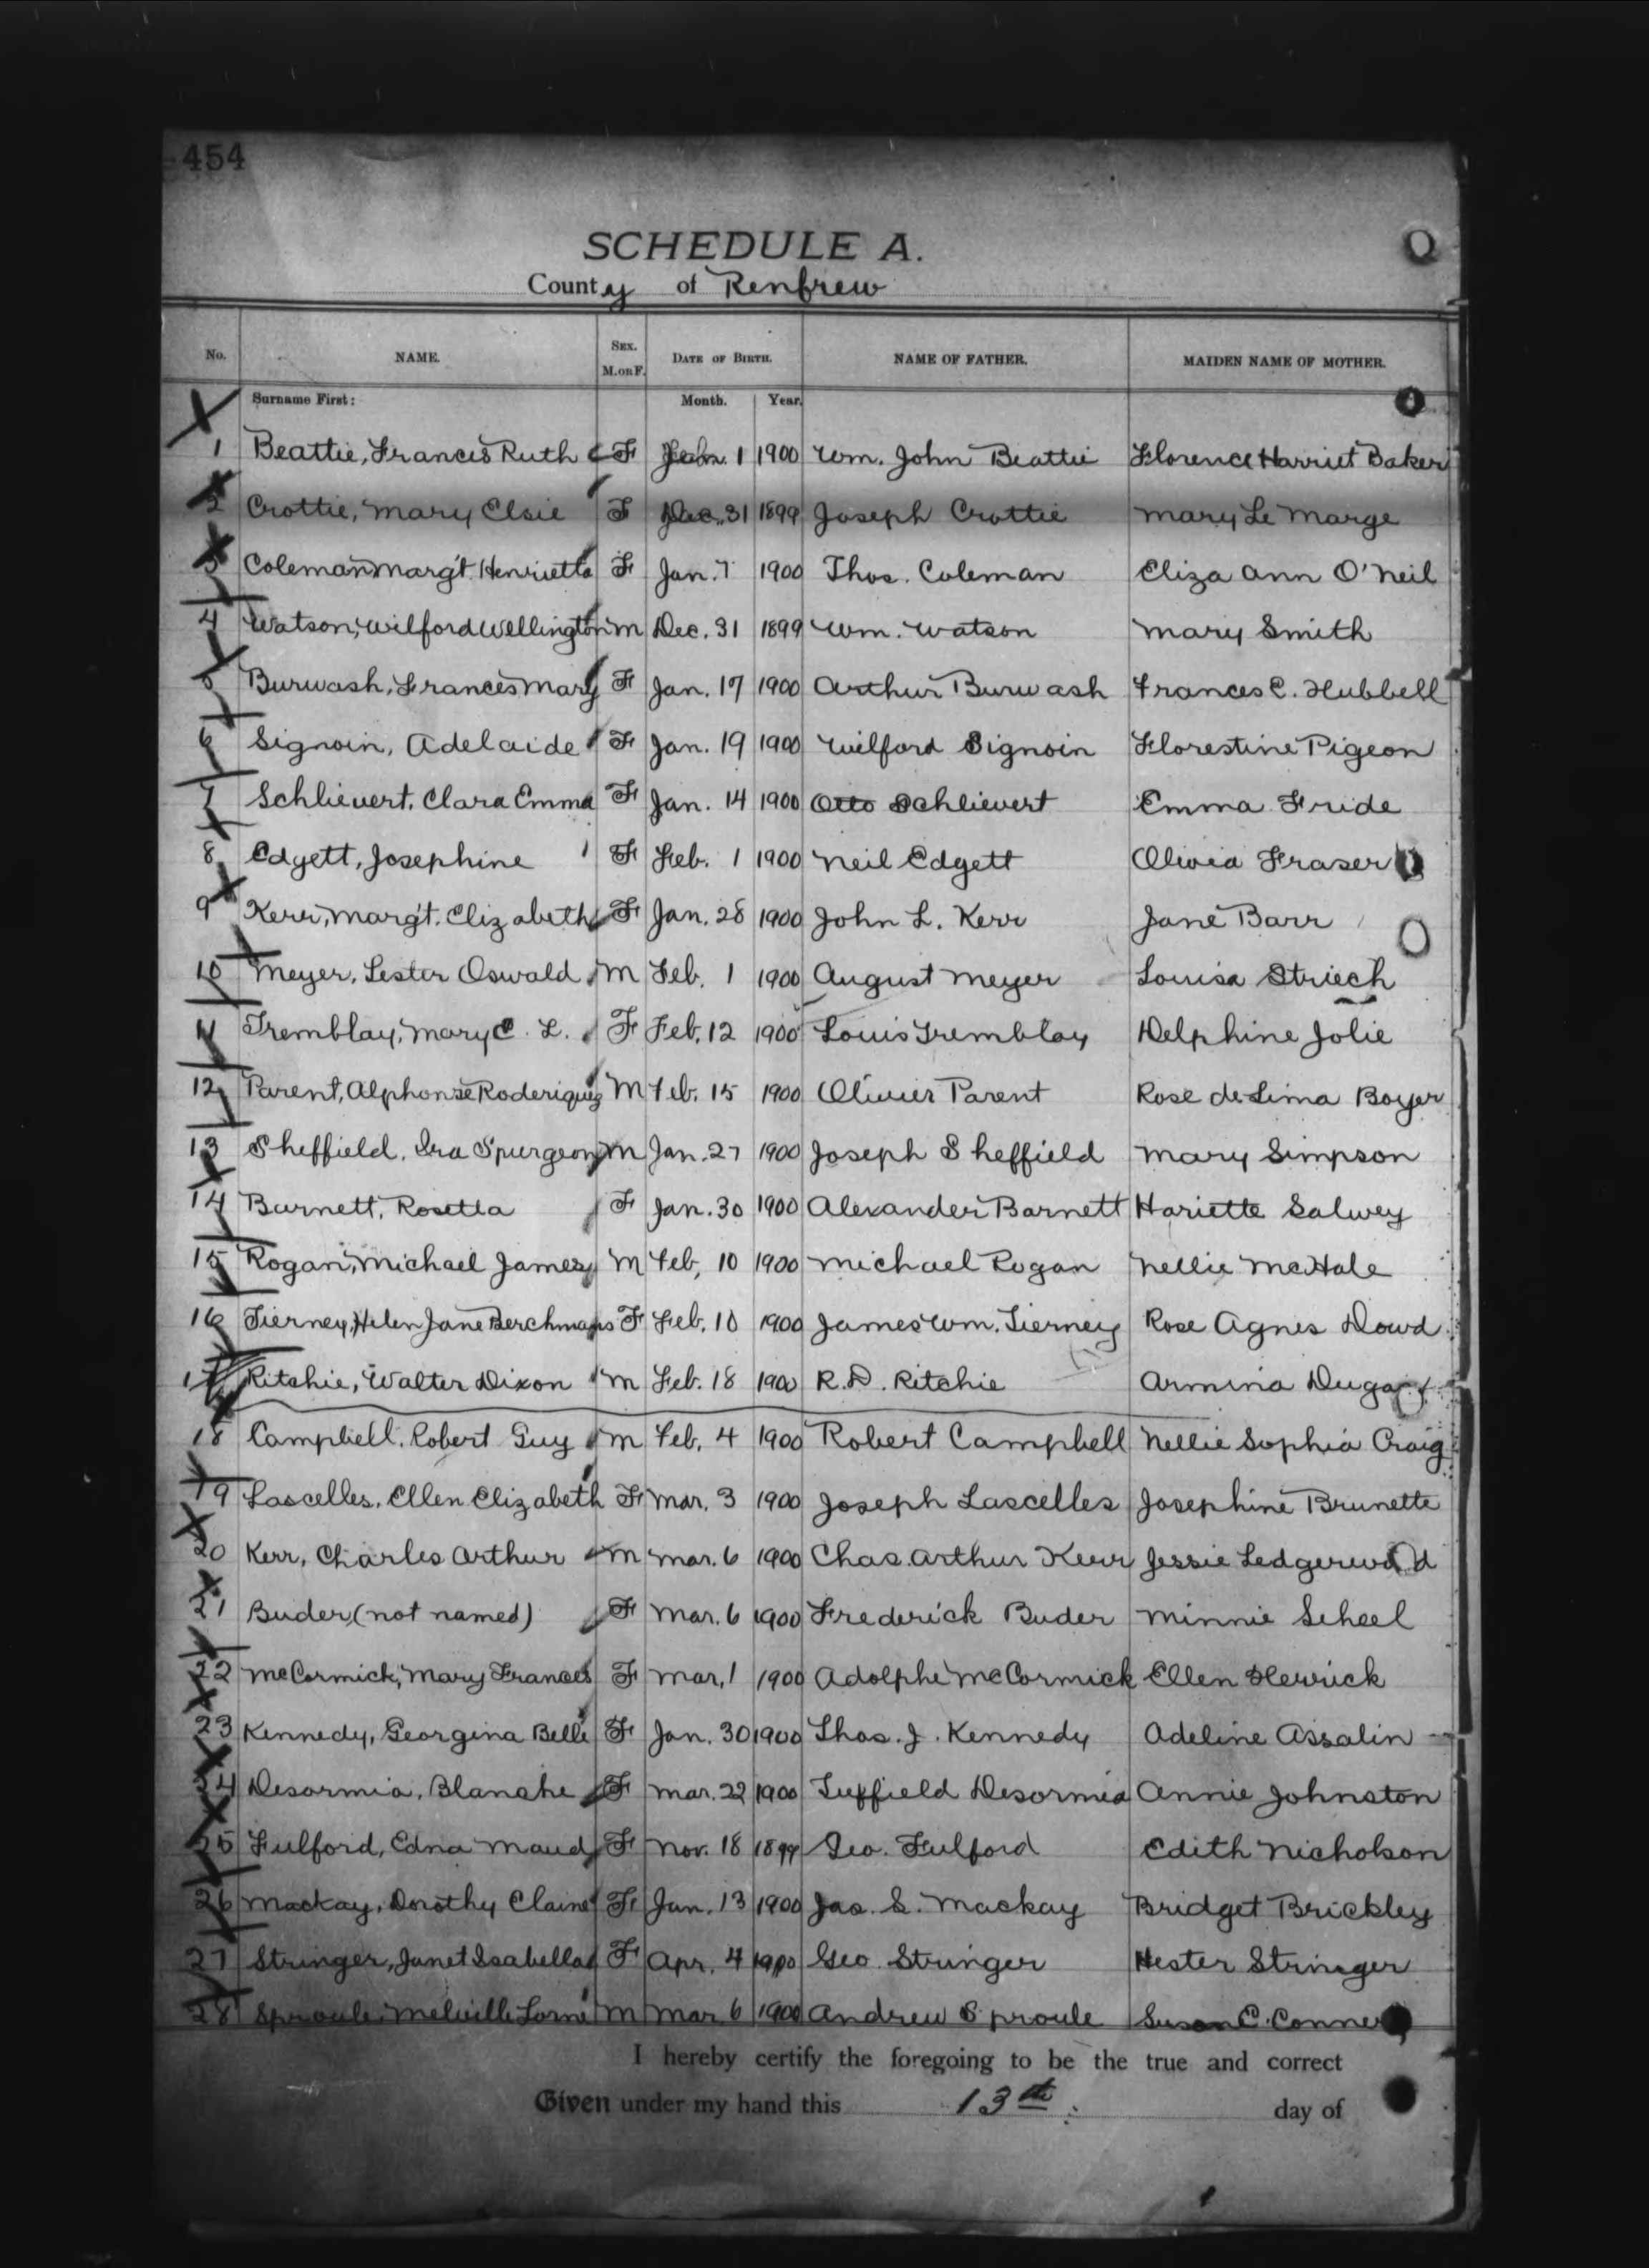 454
SCHEDULE A.
County of Renfrew
No. NAME. SEX. M. or F. DATE OF BIRTH. NAME OF FATHER. MAIDEN NAME OF MOTHER.
Surname First: Month. Year.
1 Beattie, Frances Ruth F 1 1900 Wm. John Beattie Florence Harriet Baker
2 Crottie, Mary Elsie F Dec. 31 1899 Joseph Crottie Mary Le Marge
3 Coleman, Marg't Henrietta F Jan. 7 1900 Thos. Coleman Eliza Ann O'Neil
4 Watson, Wilford Wellington M Dec. 31 1899 Wm. Watson Mary Smith
5 Burwash, Frances Mary F Jan. 17 1900 Arthur Burwash Frances C. Hubbell
6 Signoin, Adelaide F Jan. 19 1900 Wilford Signoin Florestine Pigeon
7 Schlievert, Clara Emma F Jan. 14 1900 Otto Schlievert Emma Fride
8 Edgett, Josephine F Feb. 1 1900 Neil Edgett Olivia Fraser
9 Kerr, Marg't. Elizabeth F Jan. 28 1900 John L. Kerr Jane Barr
10 Meyer, Lester Oswald M Feb. 1 1900 August Meyer Louisa Striech
11 Tremblay, Mary C. L. F Feb. 12 1900 Louis Tremblay Delphine Jolie
12 Parent, Alphonse Roderique M Feb. 15 1900 Olivier Parent Rose de Lima Boyer
13 Sheffield, Ira Spurgeon M Jan. 27 1900 Joseph Sheffield Mary Simpson
14 Burnett, Rosetta F Jan. 30 1900 Alexander Barnett Hariette Salwey
15 Rogan, Michael James M Feb. 10 1900 Michael Rogan Nellie McHale
16 Tierney, Helen Jane Berchmans F Feb. 10 1900 James Wm. Tierney Rose Agnes Dowd
17 Ritchie, Walter Dixon M Feb. 18 1900 R. D. Ritchie Armina
18 Campbell, Robert Guy M Feb. 4 1900 Robert Campbell Nellie Sophia Craig
19 Lascelles, Ellen Elizabeth F Mar. 3 1900 Joseph Lascelles Josephine Brunette
20 Kerr, Charles Arthur M Mar. 6 1900 Chas. Arthur Kerr Jessie Ledgerwood
21 Buder, (not named) F Mar. 6 1900 Frederick Buder Minnie Scheel
22 McCormick, Mary Frances F Mar. 1 1900 Adolphe McCormick Ellen Herrick
23 Kennedy, Georgina Belle F Jan. 30 1900 Thos. J. Kennedy Adeline Assalin
24 Desormia, Blanche F Mar. 22 1900 Desormia Annie Johnston
25 Fulford, Edna Maud F Nov. 18 1899 Geo. Fulford Edith Nicholson
26 Mackay, Dorothy Claire F Jan. 13 1900 Jas. S. Mackay Bridget Brickley
27 Stringer, Janet Isabella F Apr. 4 1900 Geo Stringer Hester Stringer
28 Sproule, Melville Lorne M Mar. 6 1900 Andrew Sproule Susan C. Conner
I hereby certify the foregoing to be the true and correct
Given under my hand this 13th. day of